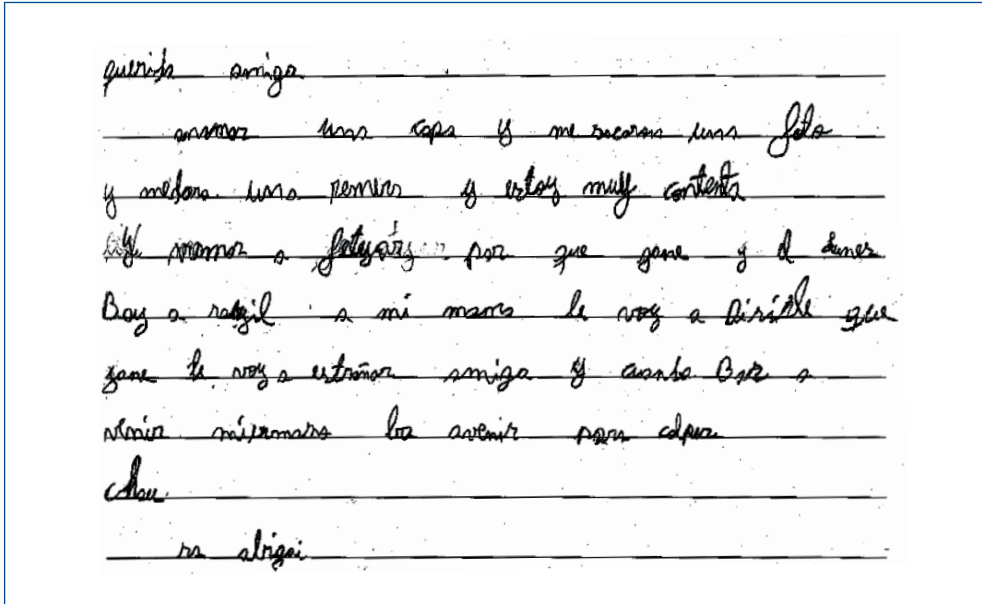 querida amiga
una copa y me sacaron una foto
y medaro una remera y estoy muy contenta
y vamos a por que gane y el lunes
Boy a a mi mama le voy a que
gane te voy a estrañar amiga y cuanto Bas a
venir miermana ba avenir para
chau
abigai